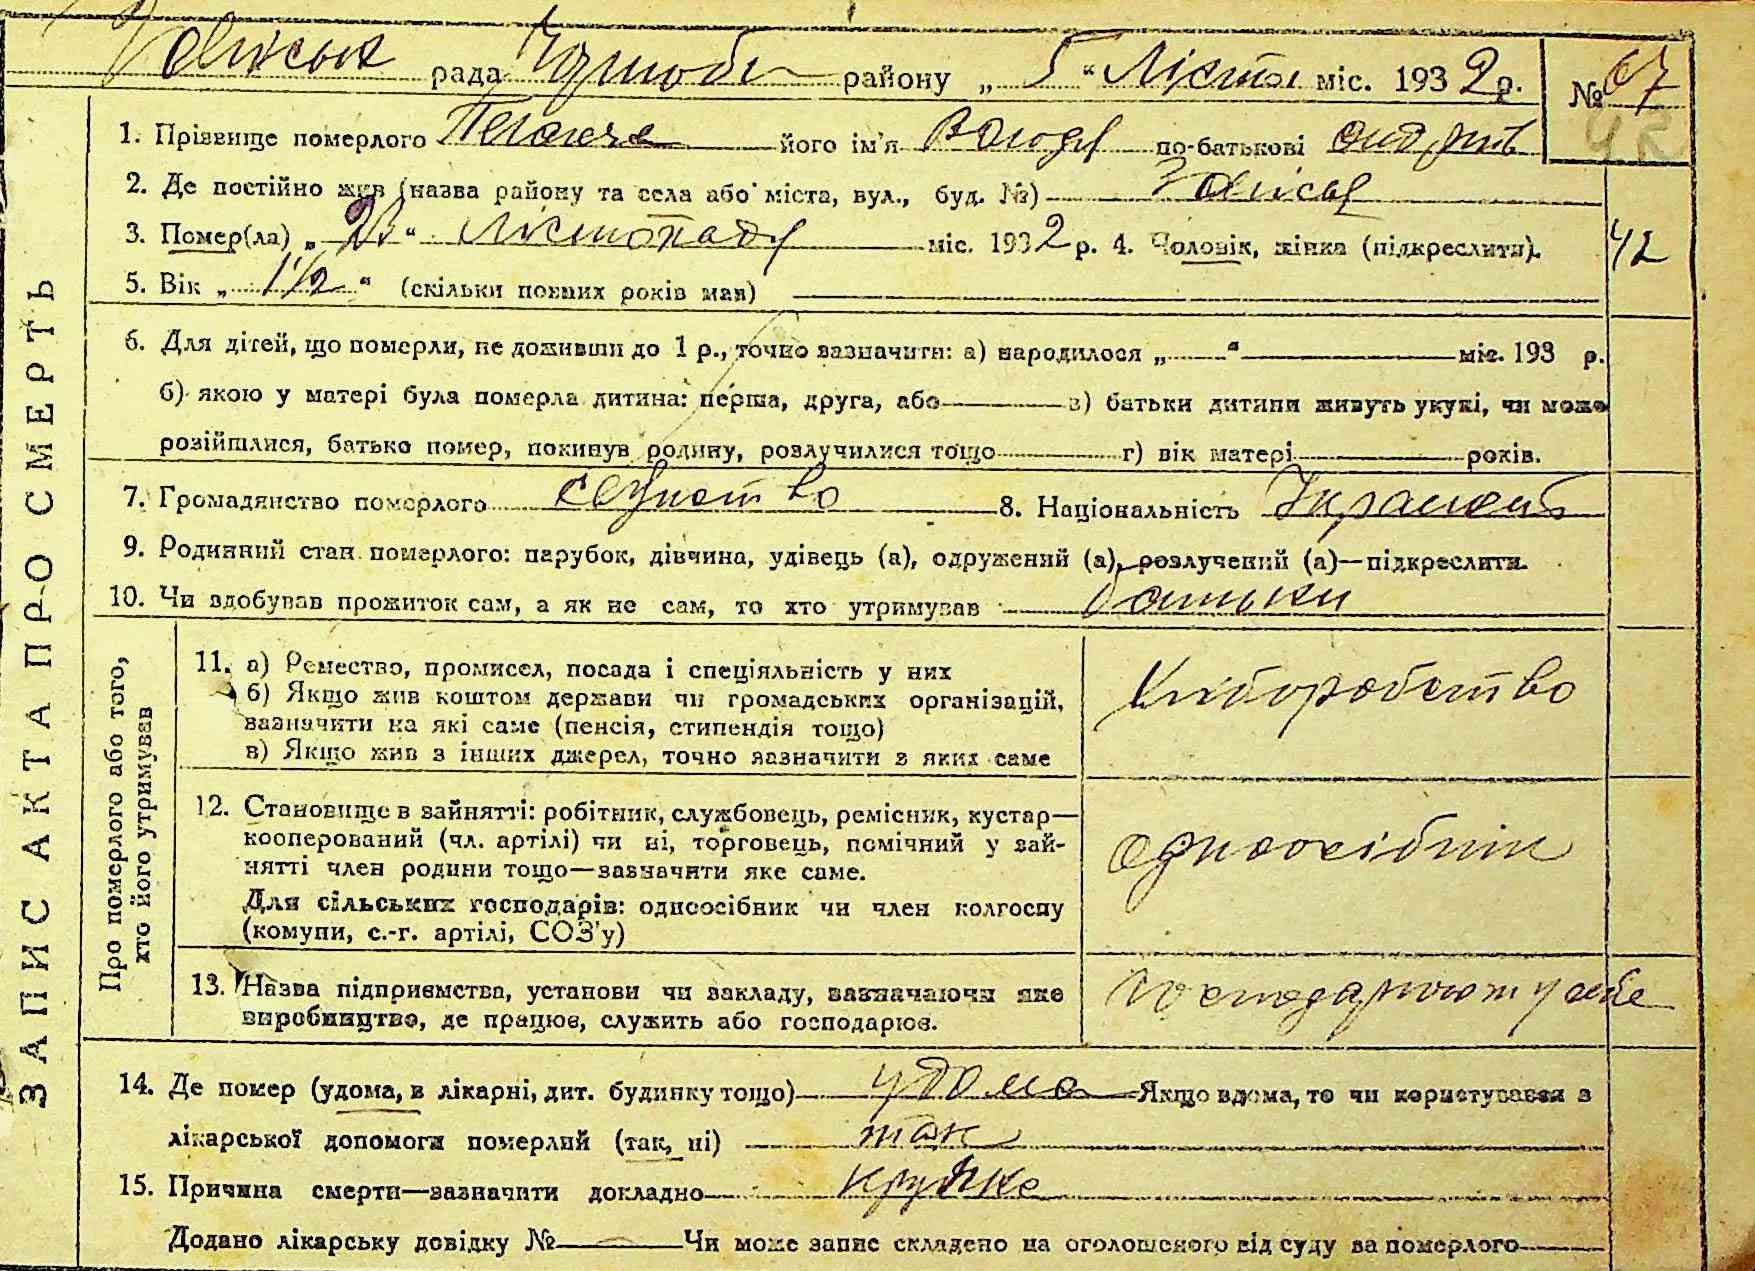 рада Чорноб району „ 5 “ Лістоп міс. 1932 р. № 67
1. Прізвище померлого його ім'я Володя по-батькові Андрпів
42
2. Де постійно жив (назва району та села або міста, вул., буд. №) Залісья
3. Помер(ла) „ “ Лістопада міс. 1932 р. 4. Чоловік, жінка (підкреслити). 42
5. Вік „ 1 1/2 “ (скільки повних років мав)
6. Для дітей, що померли, не доживши до 1 р., точно зазначити: а) народилося „ “ міс. 193 р.
б) якою у матері була померла дитина: перша, друга, або в) батьки дитини живуть укупі, чи може
розійшлися, батько помер, покинув родину, розлучилися тощо г) вік матері років.
7. Громадянство померлого 8. Національність Украінец
9. Родинний стан померлого: парубок, дівчина, удівець (а), одружений (а), розлучений (а)—підкреслити.
10. Чи здобував прожиток сам, а як не сам, то хто утримував батьки
ЗАПИС АКТА ПРО СМЕРТЬ
Про померлого або того,
хто його утримував
11. а) Ремество, промисел, посада і спеціяльність у них
б) Якщо жив коштом держави чи громадських організацій,
зазначити на які саме (пенсія, стипендія тощо)
в) Якщо жив з інших джерел, точно зазначити з яких саме
Хліборобство
12. Становище в зайнятті: робітник, службовець, ремісник, кустар—
кооперований (чл. артілі) чи ні, торговець, помічний у зай-
нятті член родини тощо—зазначити яке саме.
Для сільських господарів: одноосібник чи член колгоспу
(комуни, с.-г. артілі, СОЗ'у)
одноосібник
13. Назва підприємства, установи чи закладу, зазначаючи яке
виробництво, де працює, служить або господарює.
господарюют у себе
14. Де помер (удома, в лікарні, дит. будинку тощо) удома Якщо вдома, то чи користувався з
лікарської допомоги померлий (так, ні) так
15. Причина смерти—зазначити докладно
Додано лікарську довідку № Чи може запис складено на оголошеного від суду за померлого